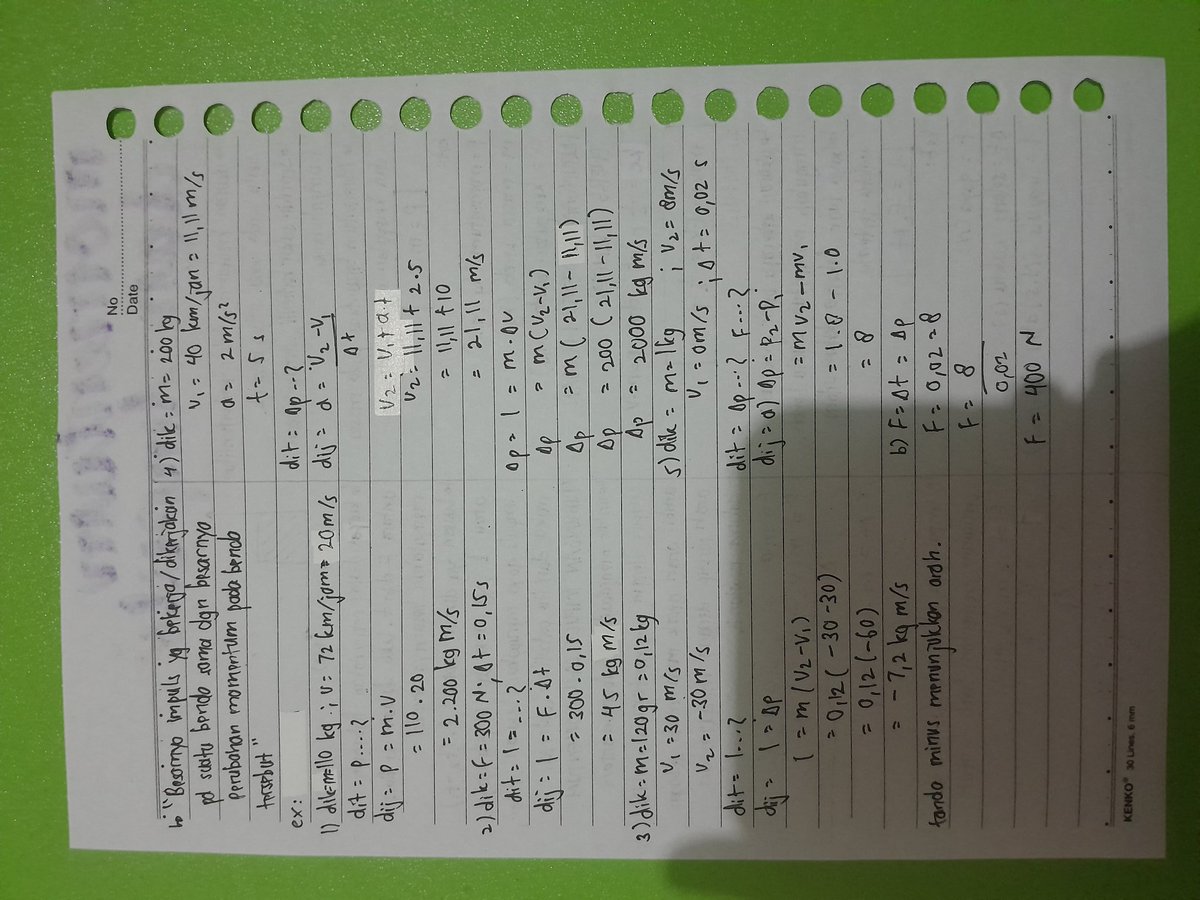 No
Date
↳ "Besarnya impuls yg bekerja/dikerjakan
pd suatu benda sama dgn besarnya
perubahan momentum pada benda
tersebut"
ex:
1) dik=m=110 kg ; v = 72 km/jam = 20 m/s
dit = p....?
dij = p = m.v
= 110 . 20
= 2.200 kg m/s
2) dik = F = 300 N ; Δt = 0,15 s
dit = I = ...?
dij = I = F. Δt
= 300 . 0,15
= 45 kg m/s
3) dik = m = 120 gr = 0,12 kg
V₁ = 30 m/s
V₂ = -30 m/s
dit = I...?
dij = I = Δp
I = m (V₂-V₁)
= 0,12 (-30-30)
= 0,12 (-60)
= -7,2 kg m/s
tanda minus menunjukkan arah.
4) dik = m = 200 kg
V₁ = 40 km/jam = 11,11 m/s
a = 2 m/s²
t = 5 s
dit = Δp...?
dij = a = V₂-V₁
Δt
V₂ = V₁ + a.t
V₂ = 11,11 + 2.5
= 11,11 + 10
= 21,11 m/s
Δp = I = m. Δv
Δp = m (V₂-V₁)
Δp = m (21,11 - 11,11)
Δp = 200 (21,11-11,11)
Δp = 2000 kg m/s
5) dik = m = 1kg ; V₂ = 8m/s
V₁ = 0m/s ; Δt = 0,02 s
dit = Δp...? F...?
dij = a) Δp = P₂-P₁
= mV₂-mv₁
= 1.8 - 1.0
= 8
b) F = Δt = Δp
F = 0,02 = 8
F = 8
0,02
F = 400 N
KENKO® 30 Lines. 6 mm